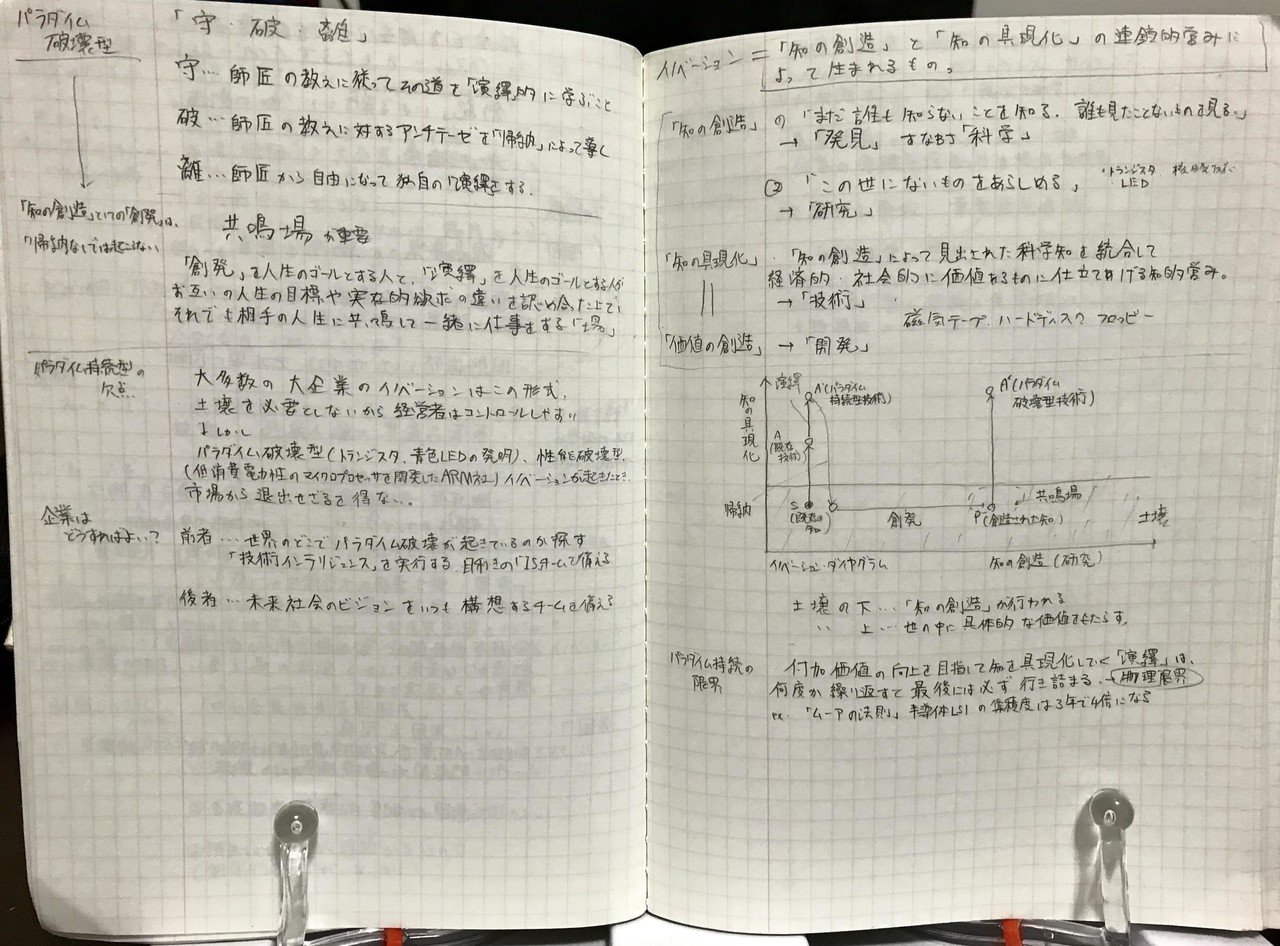 パラダイム
破壊型
「守・破・離」
守…師匠の教えに従ってその道を「演繹」的に学ぶこと
破…師匠の教えに対するアンチテーゼを「帰納」によって導く
離…師匠から自由になって独自の「演繹」をする.
「知の創造」としての「創発」は、
「帰納なしでは起こらない
共鳴場が重要
「創発」を人生のゴールとする人と、「演繹」を人生のゴールとする人が
お互いの人生の目標や実在的欲求の違いを認め合った上で、
それでも相手の人生に共鳴して一緒に仕事をする「場」
パラダイム持続型の
欠点
大多数の大企業のイノベーションはこの形式.
土壌を必要としないから経営者はコントロールしやすい
↓しかし
パラダイム破壊型(トランジスタ、青色LEDの発明)、性能破壊型
(低消費電力性のマイクロプロセッサを開発したARM社)イノベーションが起きたとき
市場から退出せざるを得ない。
企業は
どうすればよい?
前者…世界のどこでパラダイム破壊が起きているのか探す
「技術インテリジェンス」を実行する 目利きの「ISチームで備える
後者…未来社会のビジョンをいつも構想するチームを備える
イノベーション=「知の創造」と「知の具現化」の連鎖的営みに
よって生まれるもの。
「知の創造」 ①「まだ誰も知らないことを知る.誰も見たことないものを見る」
→「発見」すなわち「科学」
②「この世にないものをあらしめる」 ・トランジスタ
・LED
→「研究」
「知の具現化」・「知の創造」によって見出された科学知を統合して
経済的・社会的に価値あるものに仕立てあげる知的営み。
→「技術」
磁気テープ ハードディスク フロッピー
「価値の創造」→「開発」
知の具現化
演繹
A'(パラダイム
持続型技術)
A
(既存
技術)
A*(パラダイム
破壊型技術)
帰納
S
(既存の
知)
創発
P(創造された知)
共鳴場
土壌
イノベーション・ダイヤグラム
知の創造(研究)
土壌の下…「知の創造」が行われる
〃 上…世の中に具体的な価値をもたらす。
パラダイム持続の
限界
付加価値の向上を目指して知を具現化していく「演繹」は、
何度か繰り返すと最後には必ず行き詰まる.→物理限界
ex.「ムーアの法則」半導体LSIの集積度は3年で4倍になる